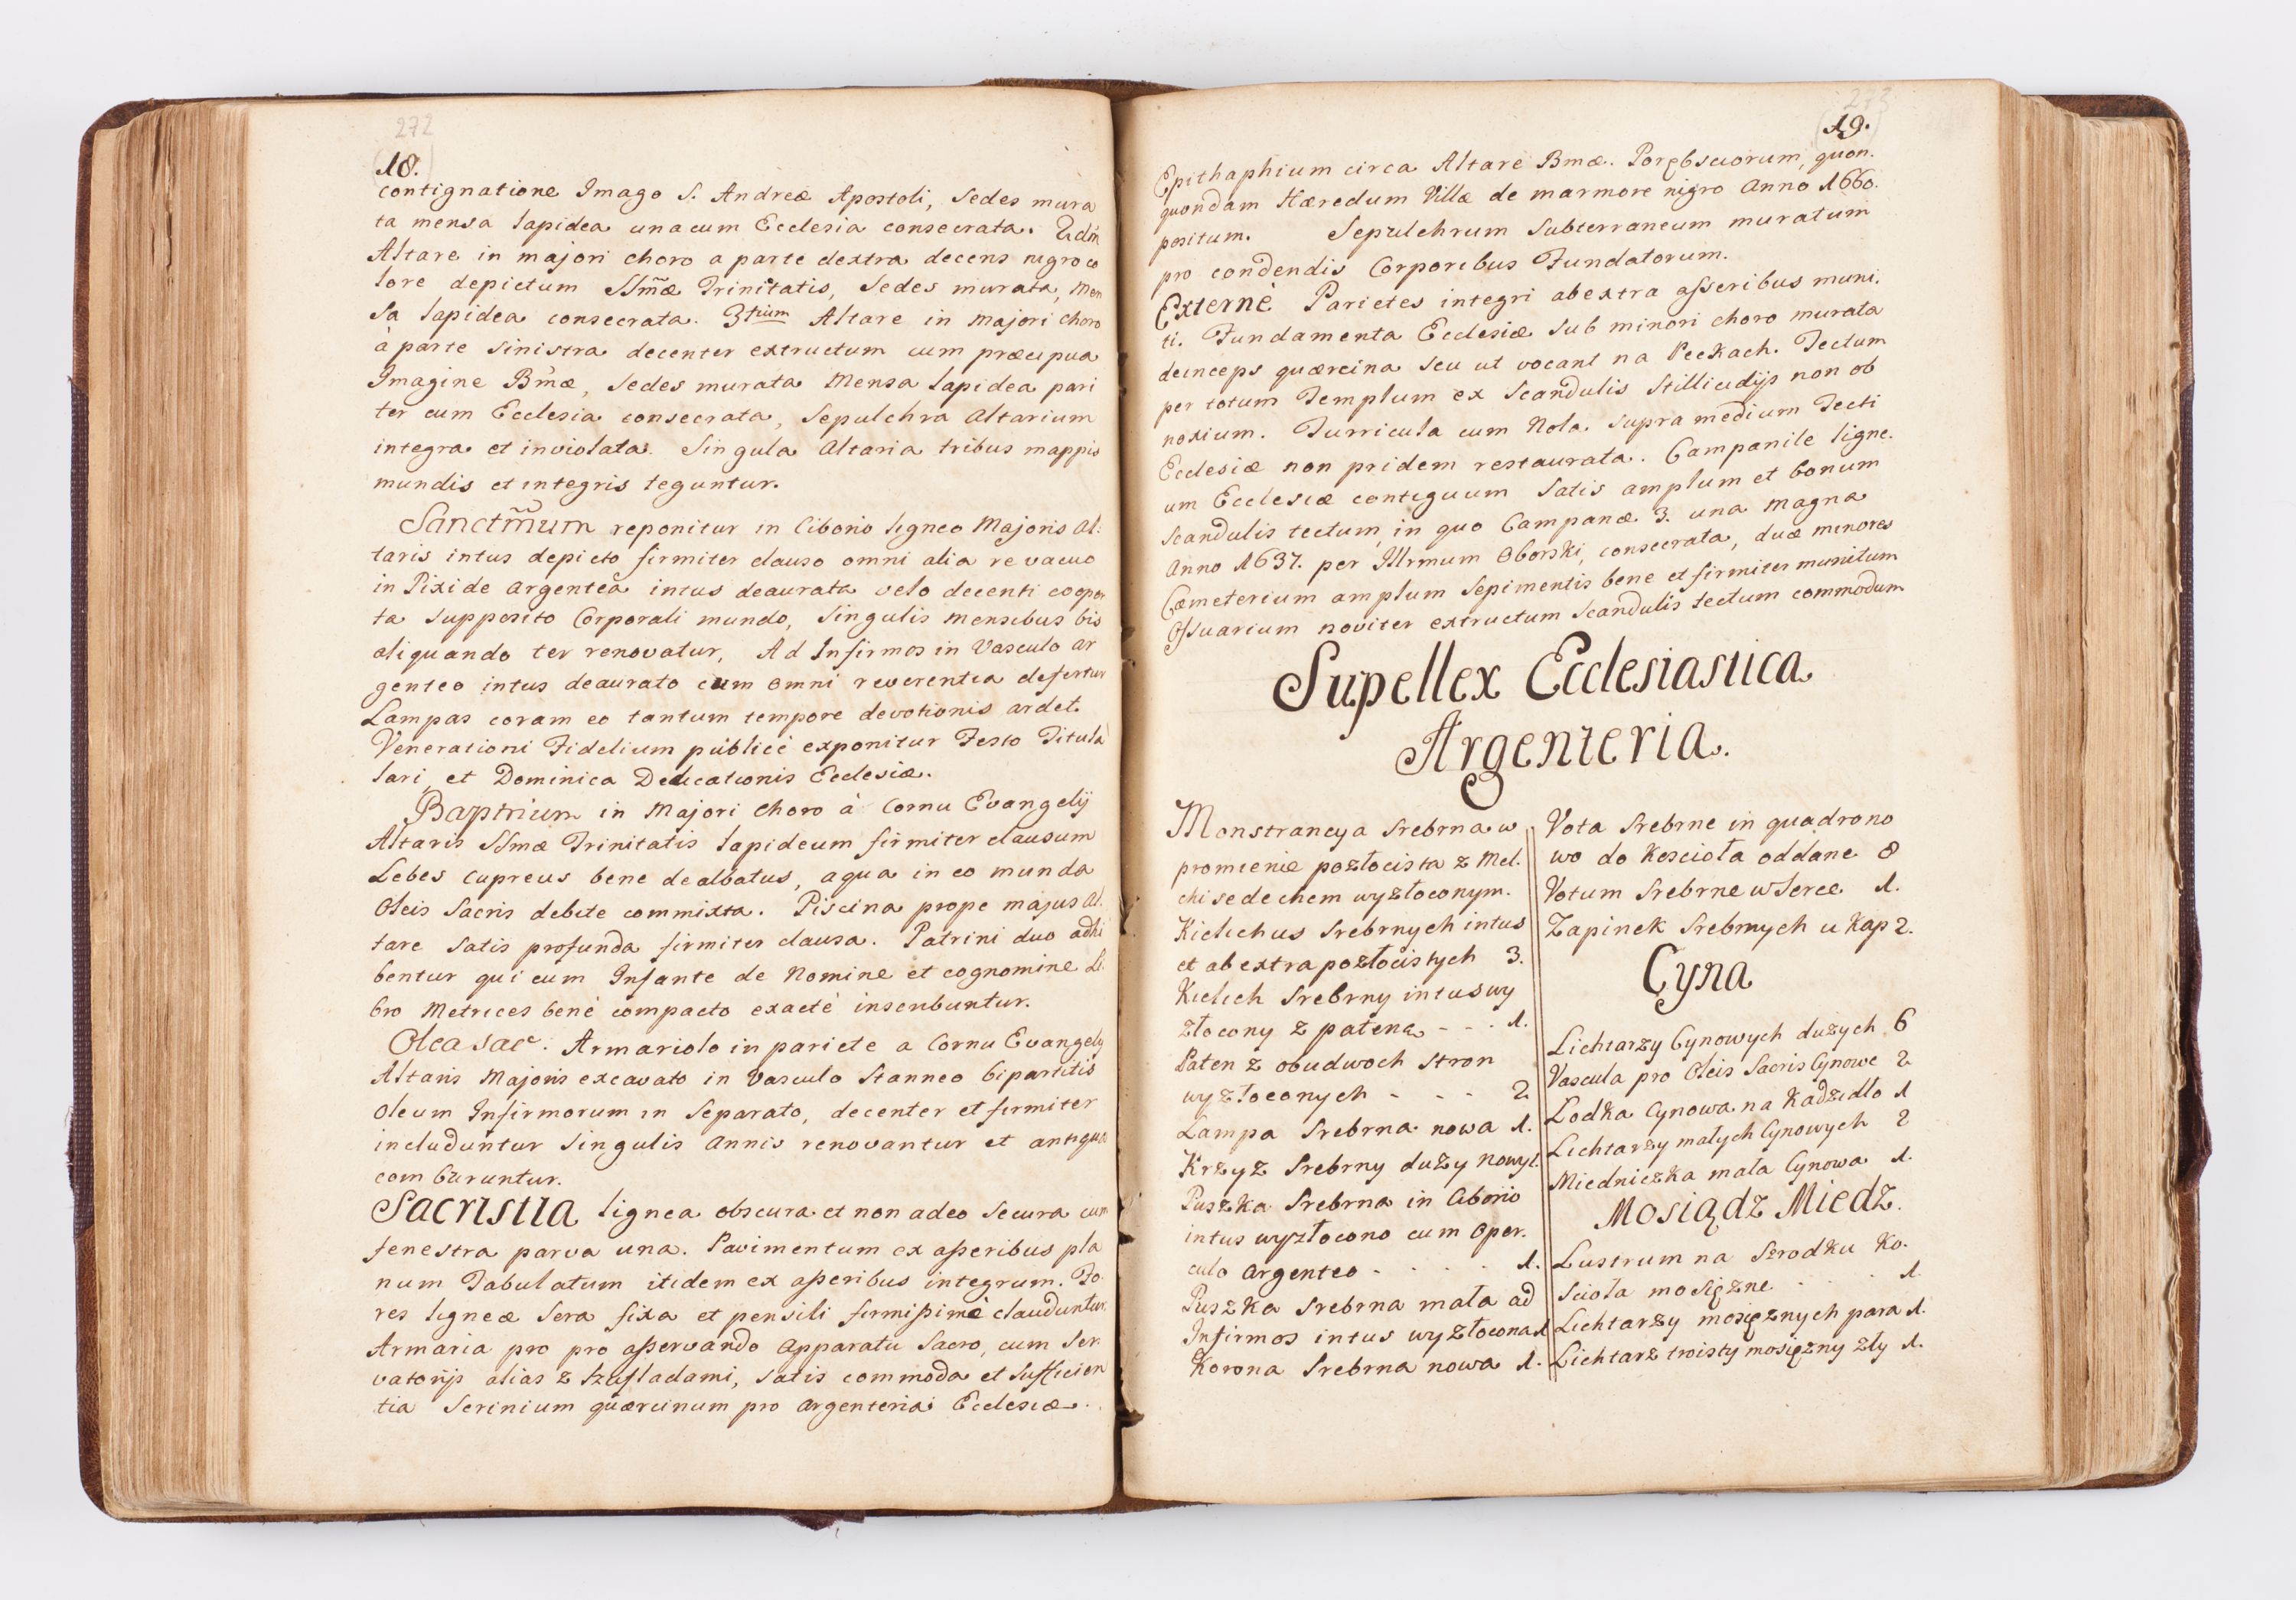 272
18.
contignatione Imago S. Andreæ Apostoli, Sedes mura
ta mensa lapidea unacum Ecclesia consecrata. 2dm
Altare in majori choro a parte dextra decens nigro co
lore depictum SSmæ Trinitatis, Sedes murata, Men
sa lapidea consecrata. 3tium Altare in majori choro
à parte sinistra decenter extructum cum præcipua
Imagine Bmæ, Sedes murata Mensa lapidea pari
ter cum Ecclesia consecrata, Sepulchra Altarium
integra et inviolata. Singula Altaria tribus mappis
mundis et integris teguntur.
Sanctm̃um reponitur in Ciborio ligneo Majoris Al:
taris intus depicto firmiter clauso omni alia re vacuo
in Pixide argenteâ intus deaurata velo decenti cooper
ta supposito Corporali mundo, singulis mensibus bis
aliquando ter renovatur, Ad Infirmos in Vasculo ar
genteo intus deaurato cum omni reverentia defertur
Lampas coram eo tantum tempore devotionis ardet.
Venerationi Fidelium publicè exponitur Festo Titula
lari, et Dominica Dedicationis Ecclesiæ.
Baptrium in Majori Choro à Cornu Evangelÿ
Altaris SSmæ Trinitatis lapideum firmiter clausum
Lebes cupreus bene dealbatus, aqua in eo munda
Oleis Sacris debite commixta. Piscina prope majus Al.
tare satis profunda firmiter clausa. Patrini duo adhi
bentur qui cum Infante de Nomine et cognomine Li.
bro Metrices benè compacto exactè inscribuntur.
Olea sac. Armariolo in pariete a Cornu Evangelÿ
Altaris Majoris excavato in Vasculo Stanneo bipartitis
Oleum Infirmorum in Separato, decenter et firmiter
includuntur singulis annis renovantur et antiqua
comburuntur.
Sacristia lignea obscura et non adeo secura cum
fenestra parva una. Pavimentum ex asseribus pla
num Tabulatum itidem ex asseribus integrum. Fo.
res ligneæ sera fixa et pensili firmissimè clauduntur.
Armaria pro pro asservando Apparatu Sacro, cum Ser
vatorÿs alias z Szufladami, satis commoda et Sufficien
tia Scrinium quærcinum pro argenteria Ecclesiæ.
273
19.
Epithaphium circa Altare Bmæ. Porębsciorum, quon.
quondam Hæredum Villæ de marmore nigro Anno 1660.
positum. Sepulchrum Subterraneum muratum
pro condendis Corporibus Fundatorum.
Externè Parietes integri abextra asseribus muni.
ti. Fundamenta Ecclesiæ sub minori choro murata
deinceps quærcina seu ut vocant na Peckach. Tectum
per totum Templum ex Scandulis Stillicidÿs non ob
noxium. Turricula cum Nola. supra medium Tecti
Ecclesiæ non pridem restaurata. Campanile ligne.
um Ecclesiæ contiguum satis amplum et bonum
scandulis tectum, in quo Campanæ 3. una magna
Anno 1637. per Illrmum Oborski, consecrata, duæ minores
Cæmeterium amplum Sepimentis bene et firmiter munitum
Ossuarium noviter extructum scandulis tectum commodum
Supellex Ecclesiastica
Argenteria.
Monstrancya Srebrna w
promienie pozłocista z Mel.
chisedechem wyzłoconym.
Kielichus Srebrnych intus
et ab extra pozłocistych 3.
Kielich Srebrny intus wy
złocony z pateną - - . 1.
Paten z obudwoch stron
wyzłoconych - - - 2
Lampa Srebrna nowa 1.
Krzyz Srebrny duży nowy 1.
Puszka Srebrna in Ciborio
intus wyzłocono cum Oper.
culo Argenteo - . . . . 1.
Puszka Srebrna mała ad
Infirmos intus wyzłocona 1
Korona Srebrna nowa 1.
Vota Srebrne in quadro no
wo do Kościoła oddane 8
Votum Srebrne w Serce 1.
Zapinek Srebrnych u Kap 2.
Cyna
Lichtarzy Cynowych dużych 6
Vascula pro Oleis Sacris Cynowe 2
Lodka Cynowa na Kadzidlo 1
Lichtarzy małych Cynowych 2
Miedniczka mała Cynowa 1.
Mosiądz Miedz.
Lustrum na Srzodku Ko.
scioła mosiężne . . . 1.
Lichtarzy mosiężnych para 1.
Lichtarz troisty mosiężny zły 1.